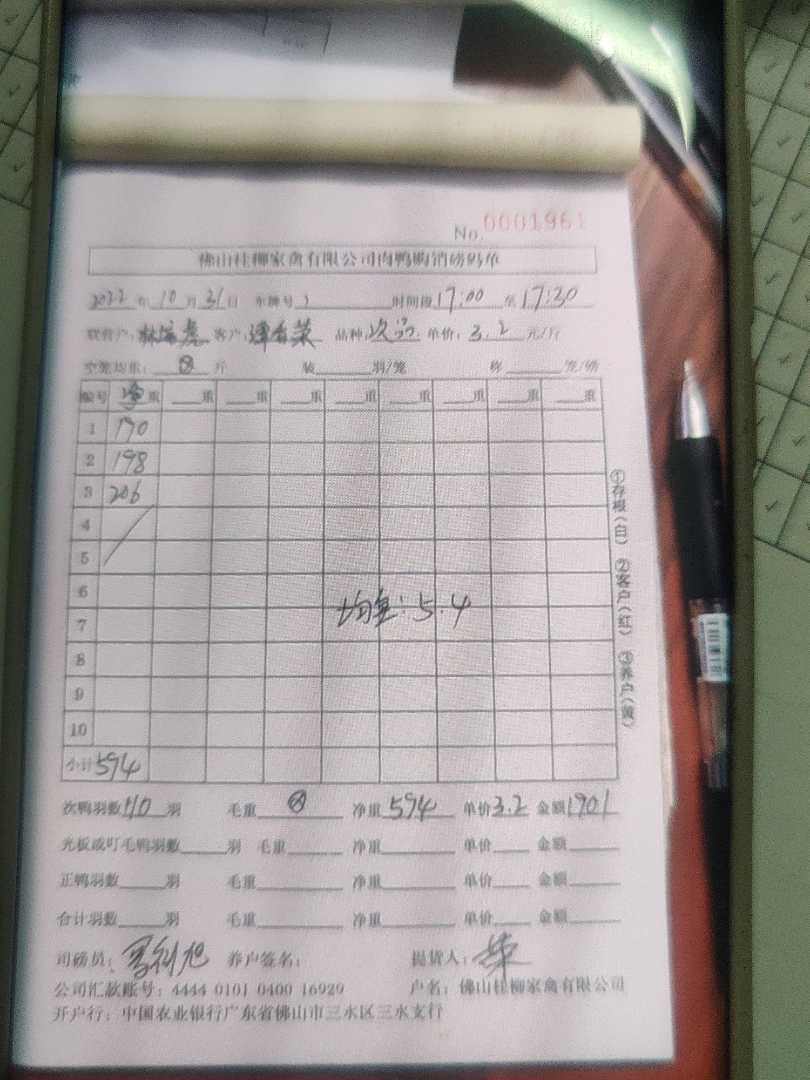 No. 0001961
佛山桂柳家禽有限公司肉鸭购销磅码单
2022年10月31日 车牌号 时间段17:00至17:30
联养户: 客户:谭香荣 品种:次品 单价:3.2元/斤
空笼均重:⊗斤 装 羽/笼 称 笼/磅
编号 净重 重 重 重 重 重 重 重 重
1 190
2 198
3 206
4
5
6
均重:5.4
7
8
9
10
小计 594
次鸭羽数110羽 毛重⊗ 净重594 单价3.2 金额1901
光板或叮毛鸭羽数 羽 毛重 净重 单价 金额
正鸭羽数 羽 毛重 净重 单价 金额
合计羽数 羽 毛重 净重 单价 金额
司磅员: 养户签名: 提货人:荣
公司汇款账号:4444 0101 0400 16929 户名:佛山桂柳家禽有限公司
开户行:中国农业银行广东省佛山市三水区三水支行
①存根(白) ②客户(红) ③养户(黄)